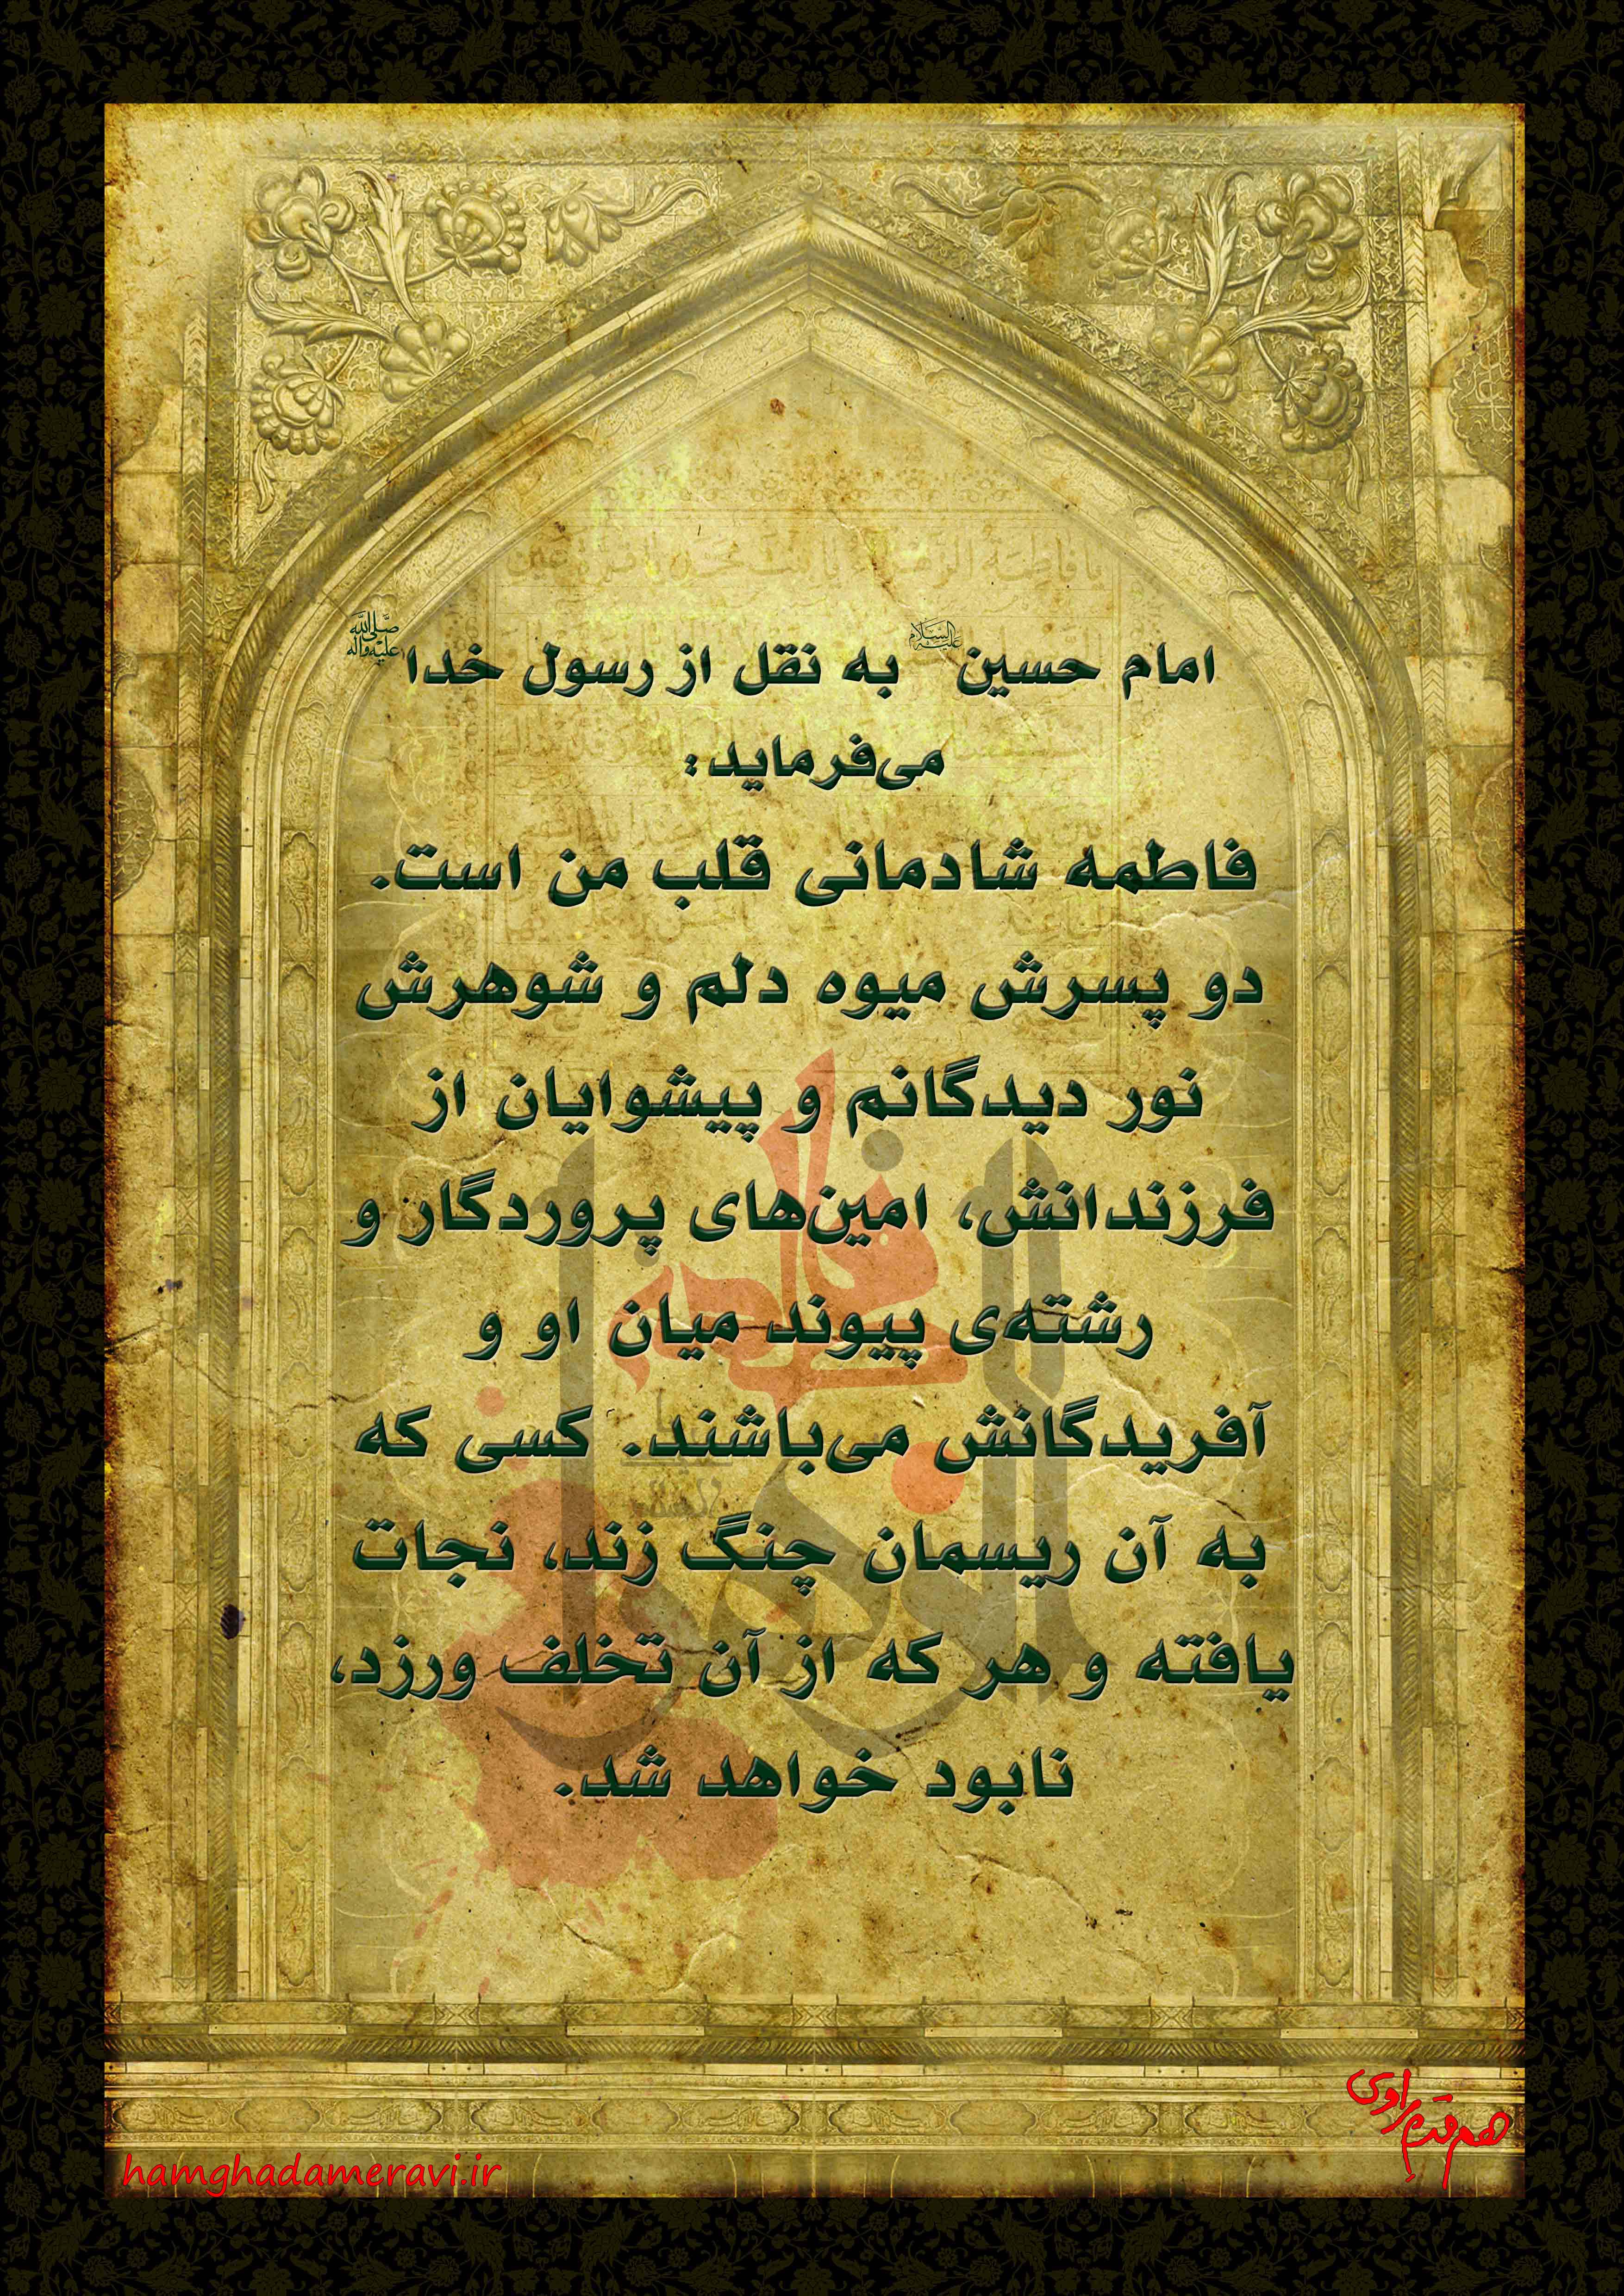 امام حسین علیه السلام به نقل از رسول خدا صلی الله علیه وآله
می‌فرماید:
فاطمه شادمانی قلب من است.
دو پسرش میوه دلم و شوهرش
نور دیدگانم و پیشوایان از
فرزندانش، امین‌های پروردگار و
رشته‌ی پیوند میان او و
آفریدگانش می‌باشند. کسی که
به آن ریسمان چنگ زند، نجات
یافته و هر که از آن تخلف ورزد،
نابود خواهد شد.
فاطمه
الزهرا
هم‌قدم راوی
hamghadameravi.ir